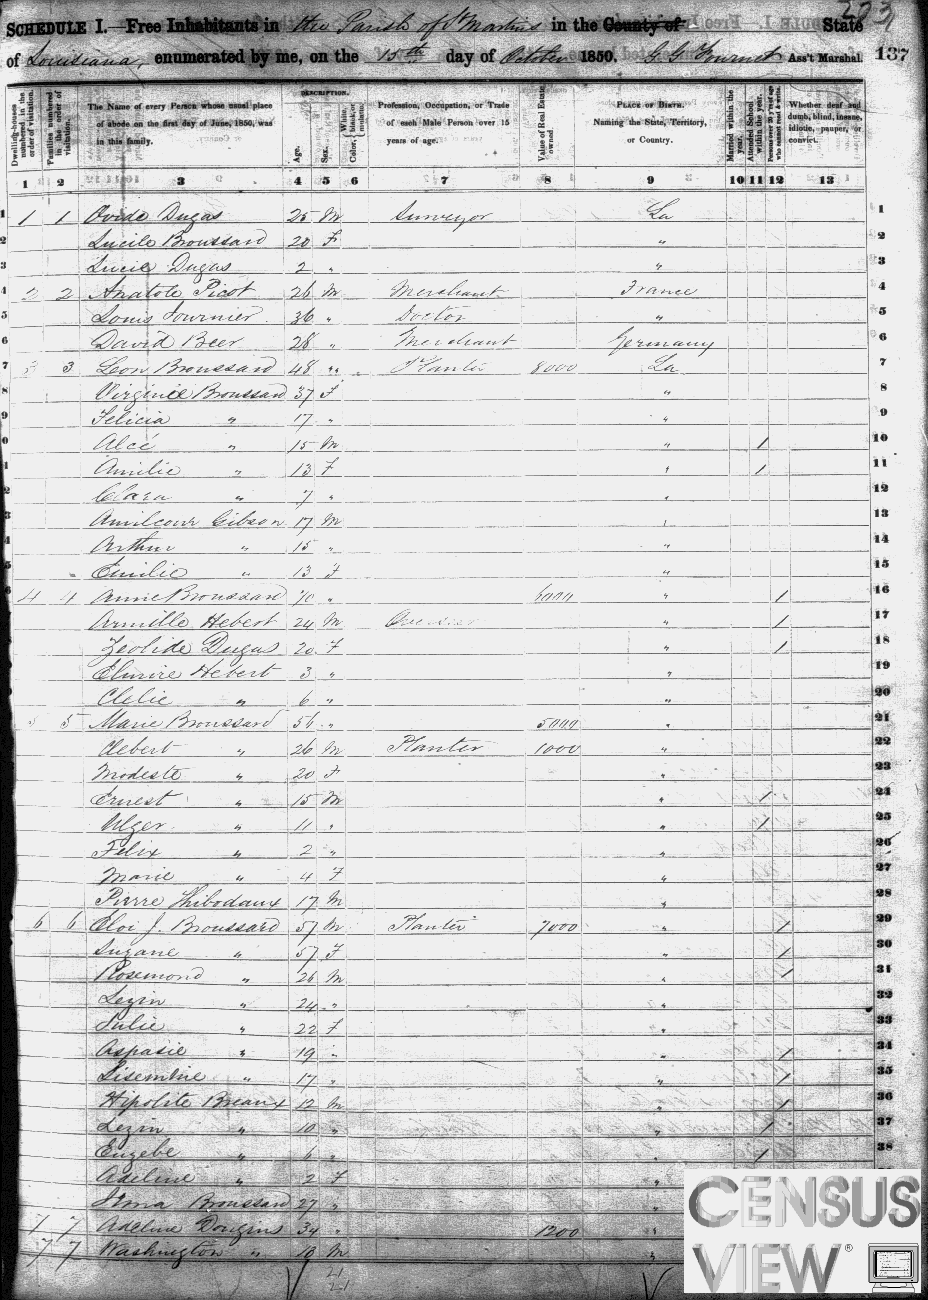 SCHEDULE I.—Free Inhabitants in the Parish of St Martins in the County of State
of Louisiana, enumerated by me, on the 15th day of October 1850. Ass't Marshal. 137
Dwelling-houses numbered in the order of visitation.
Families numbered in the order of visitation.
The Name of every Person whose usual place of abode on the first day of June, 1850, was in this family.
DESCRIPTION.
Age.
Sex.
Color, White, black, or mulatto.
Profession, Occupation, or Trade of each Male Person over 15 years of age.
Value of Real Estate owned.
PLACE OF BIRTH. Naming the State, Territory, or Country.
Married within the year.
Attended School within the year.
Persons over 20 y'rs of age who cannot read & write.
Whether deaf and dumb, blind, insane, idiotic, pauper, or convict.
1 2 3 4 5 6 7 8 9 10 11 12 13
1 1 1 Ovide Dugas 25 M Surveyor La 1
2 Lucile Broussard 20 F " 2
3 Lucie Dugas 2 " " 3
4 2 2 Anatole Picot 26 M Merchant France 4
5 Louis Fournier 36 " Doctor " 5
6 David Beer 28 " Merchant Germany 6
7 3 3 Leon Broussard 48 " Planter 8000 La 7
8 Virginie Broussard 37 F " 8
9 Felicia " 17 " " 9
0 Alcé " 15 M " 1 10
1 Amilie " 13 F " 1 11
2 Clara " 7 " " 12
3 Amilcour Gibson 17 M " 13
4 Arthur " 15 " " 14
5 Emilie " 13 F " 15
4 4 Anne Broussard 70 " 6000 " 1 16
Armille Hebert 24 M Overseer " 1 17
Zeolide Dugas 20 F " 1 18
Elmire Hebert 3 " " 19
Clelie " 6 " " 20
5 5 Marie Broussard 56 " 5000 " 21
Clebert " 26 M Planter 1000 " 22
Modeste " 20 F " 23
Ernest " 15 M " 1 24
Ulger " 11 " " 1 25
Felix " 2 " " 26
Marie " 4 F " 27
Pierre Thibodaux 17 M " 28
6 6 Eloi J. Broussard 57 M Planter 7000 " 1 29
Suzane " 57 F " 1 30
Rosemond " 26 M " 1 31
Lezin " 24 " " 32
Julie " 22 F " 33
Aspasie " 19 " " 1 34
" 17 " " 1 35
Hipolite Breaux 12 M " 1 36
Lezin " 10 " " 1 37
Euzebe " 6 " " 1 38
Adeline " 2 F "
Broussard 27 " "
7 Adeline 34 " 1200 "
7 7 Washington " 10 M "
CENSUS
VIEW®